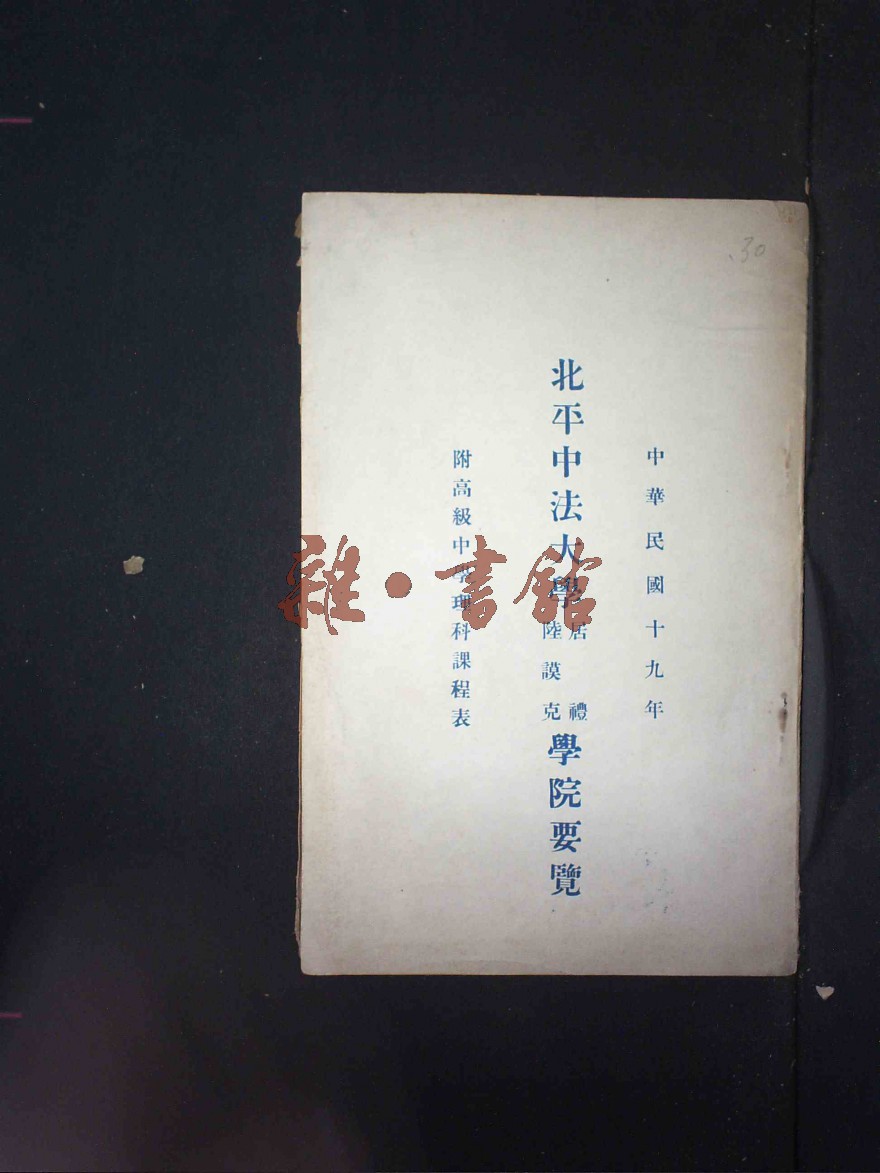 30
中華民國十九年
北平中法大學居禮陸謨克學院要覽
附高級中學理科課程表
雜·書館